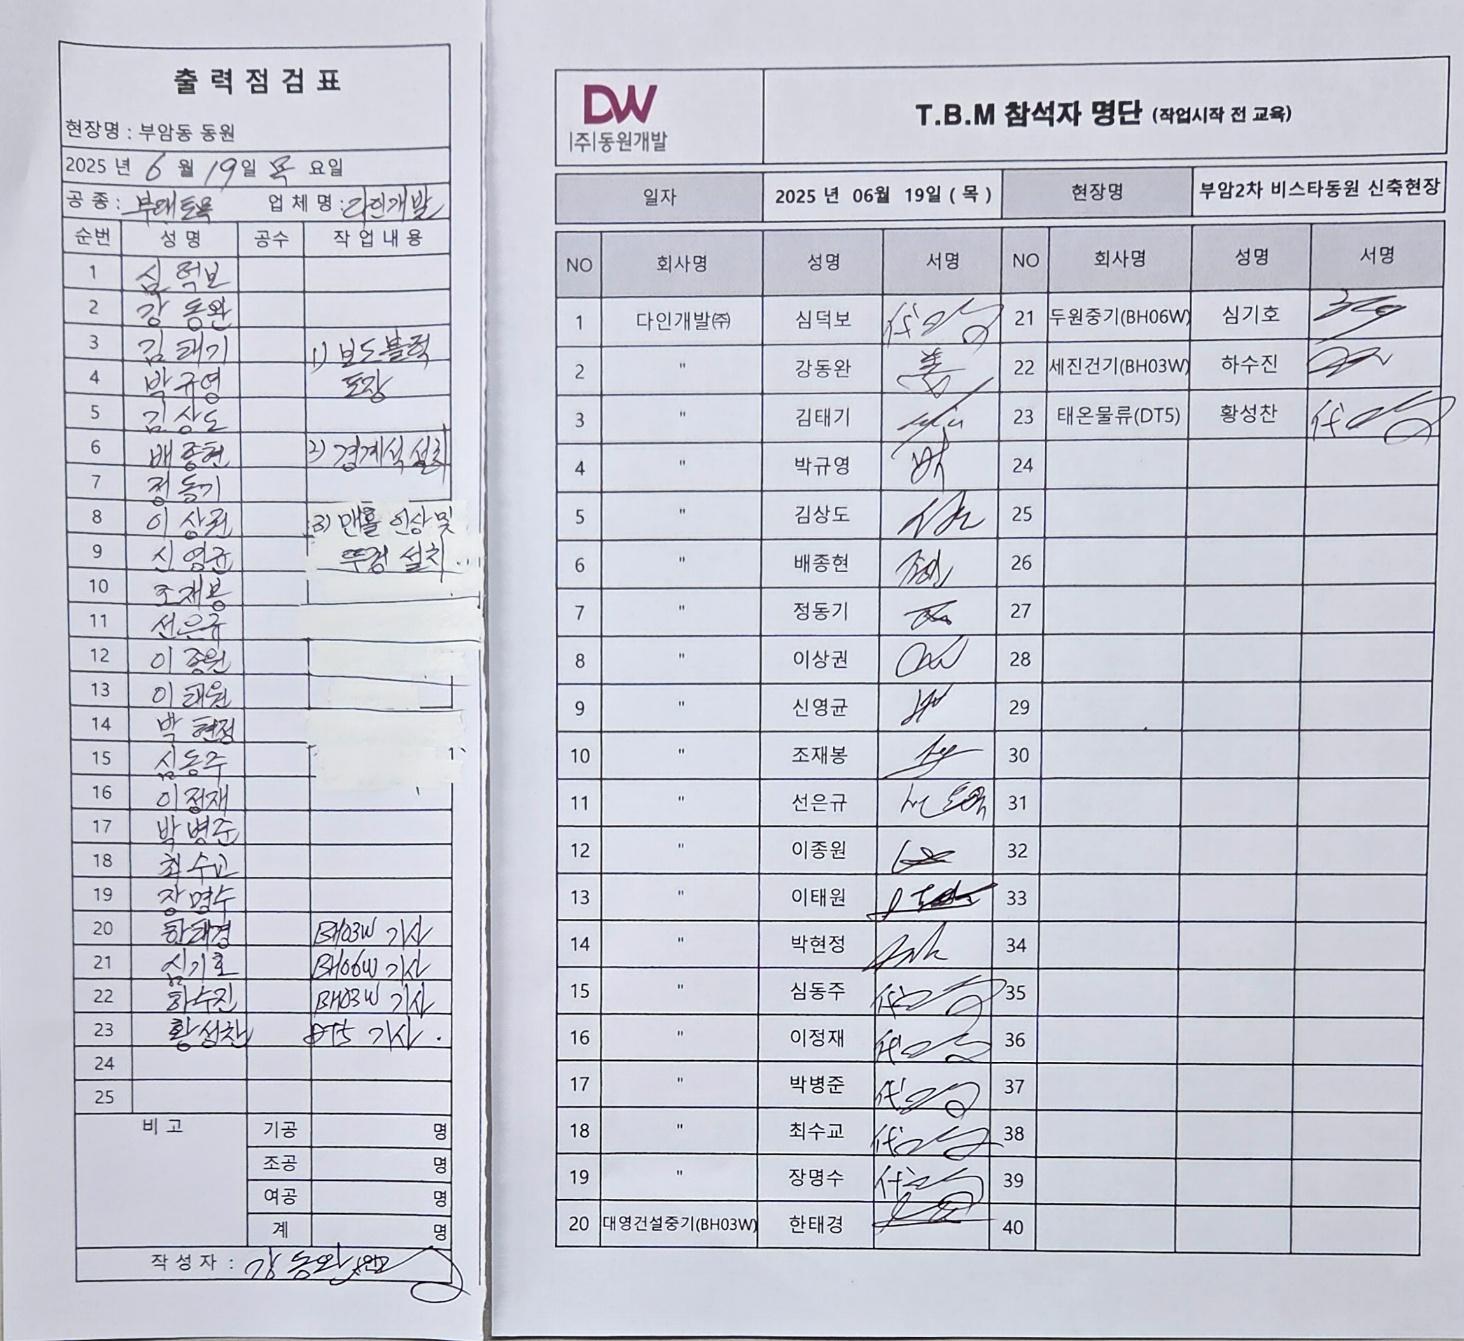 출력점검표
현장명 : 부암동 동원
2025 년 6 월 19일 목 요일
공 종 : 부대토목 업 체 명 : 다인개발
순번 성 명 공수 작 업 내 용
1 심덕보
2 강동완
3 김태기 1) 보도블럭
4 박규영 포장
5 김상도
6 배종현 2) 경계석 설치
7 정동기
8 이상권 3) 맨홀 인상 및
9 신영균 뚜껑 설치
10 조재봉
11 선은규
12 이종원
13 이태원
14 박현정
15 심동주
16 이정재
17 박병준
18 최수교
19 장명수
20 한태경 BH03W 기사
21 심기호 BH06W 기사
22 하수진 BH03W 기사
23 황성찬 DT5 기사
24
25
비 고 기공 명
조공 명
여공 명
계 명
작 성 자 : 강동완
DW
(주)동원개발
T.B.M 참석자 명단 (작업시작 전 교육)
일자 2025 년 06월 19일 ( 목 ) 현장명 부암2차 비스타동원 신축현장
NO 회사명 성명 서명 NO 회사명 성명 서명
1 다인개발㈜ 심덕보 代 21 두원중기(BH06W) 심기호
2 " 강동완 22 세진건기(BH03W) 하수진
3 " 김태기 23 태온물류(DT5) 황성찬 代
4 " 박규영 24
5 " 김상도 25
6 " 배종현 26
7 " 정동기 27
8 " 이상권 28
9 " 신영균 29
10 " 조재봉 30
11 " 선은규 31
12 " 이종원 32
13 " 이태원 33
14 " 박현정 34
15 " 심동주 代 35
16 " 이정재 代 36
17 " 박병준 代 37
18 " 최수교 代 38
19 " 장명수 代 39
20 대영건설중기(BH03W) 한태경 40